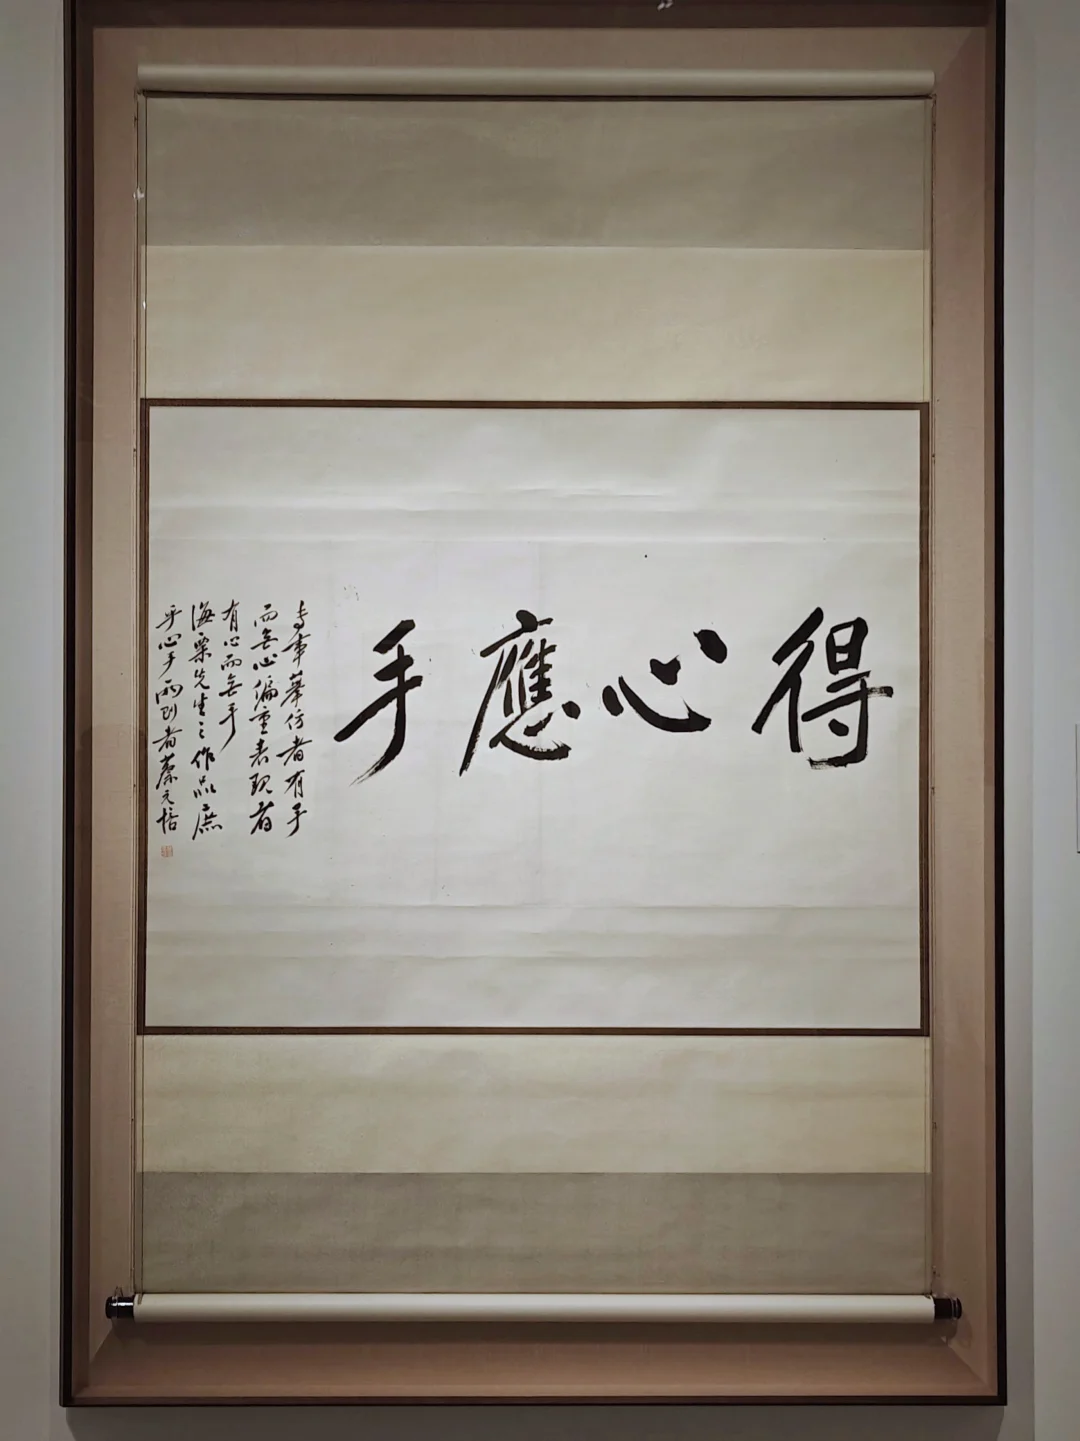 得心應手
专事摹仿者有手
而無心偏重表現者
有心而無手
海粟先生之作品庶
乎心手兩到者蔡元培